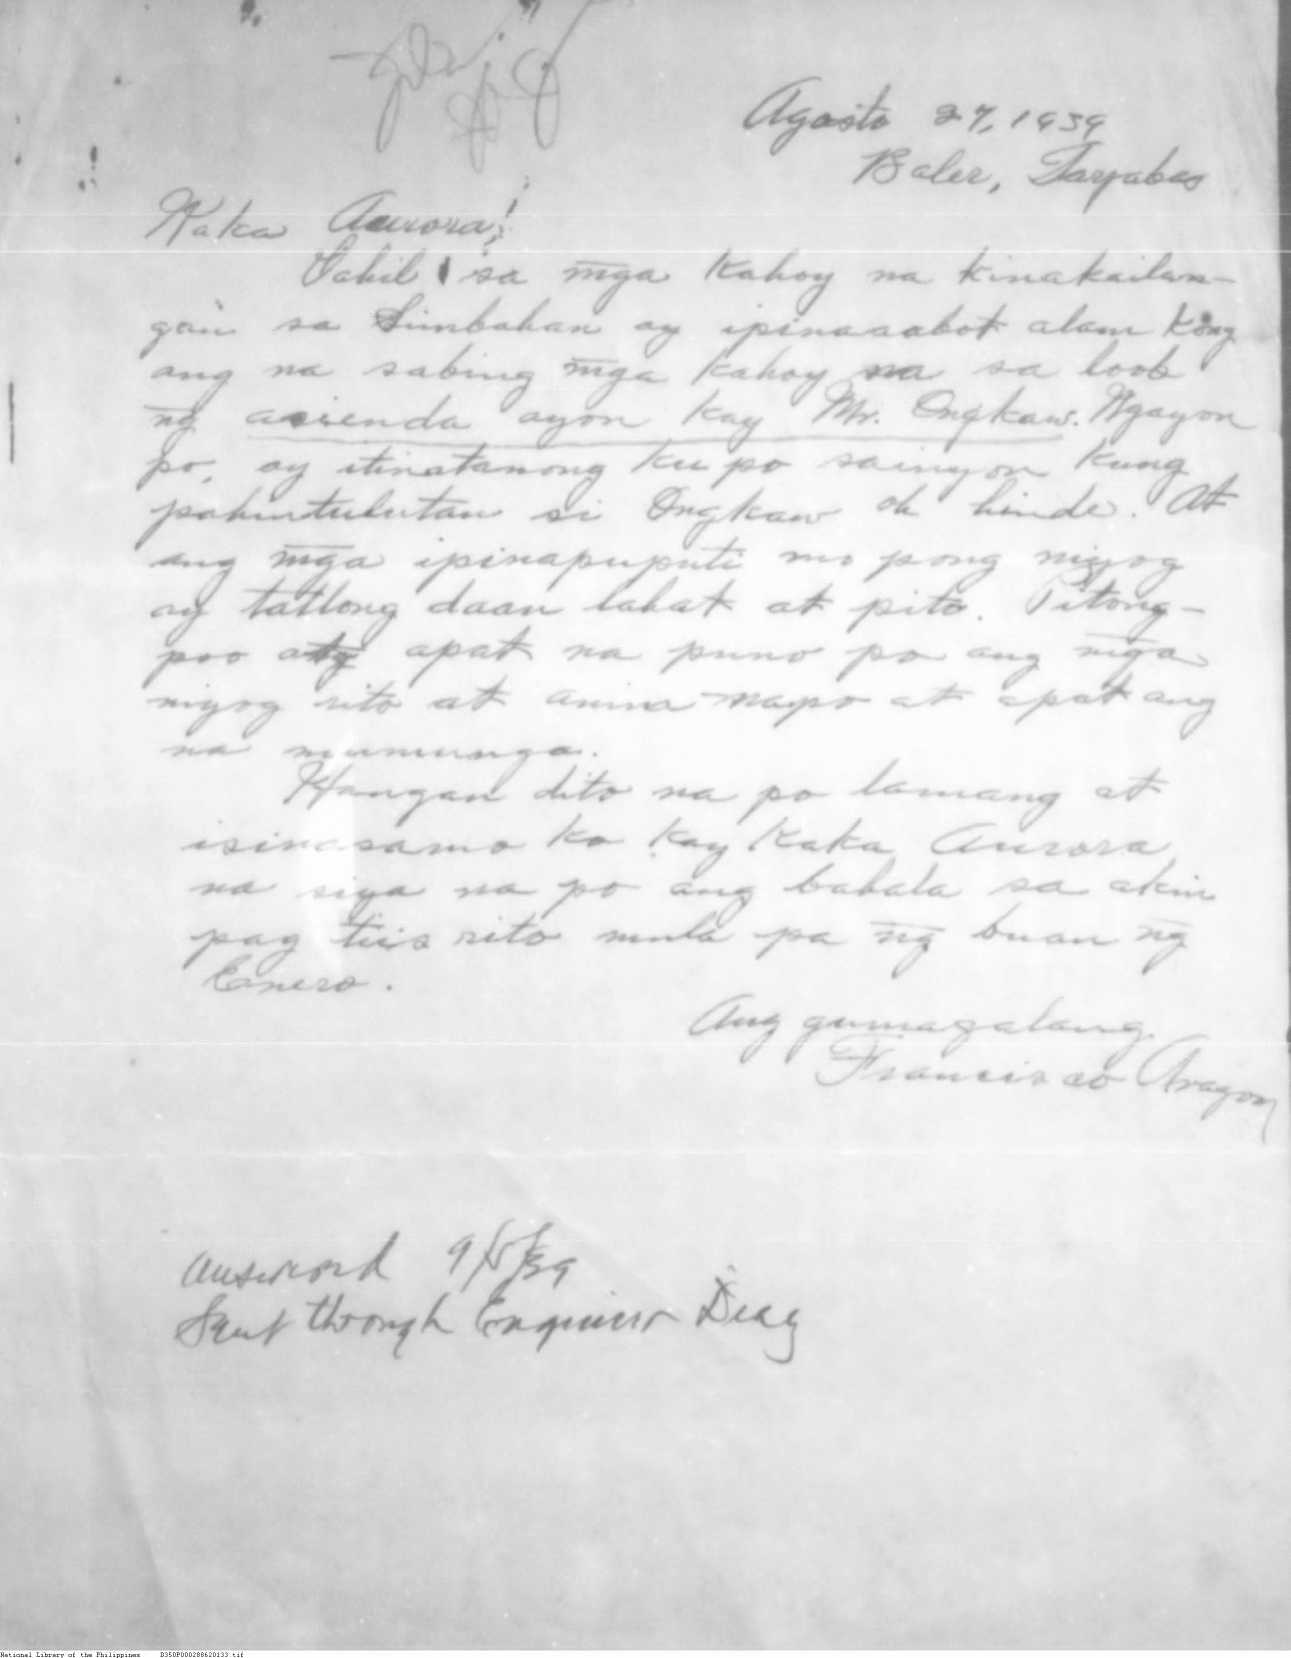 Agosto 27, 1939
Baler, Tayabas
Kaka Aurora!
Dahil sa mga kahoy na kinakailan-
gan sa Simbahan ay ipinaaabot alam kong
ang na sabing mga kahoy na sa loob
ng asienda ayon kay Mr. Ongkaw. Ngayon
po, ay itinatanong ku po sainyon kung
pahintulutan si Ongkaw oh hinde. At
ang mga ipinapuputi mo pong niyog
ay tatlong daan lahat at pito. Pitong-
poo at apat na puno po ang mga
niyog rito at anima napo at apat ang
na mumunga.
Hangan dito na po lamang at
isinasamo ko kay Kaka Aurora
na siya na po ang bahala sa akin
pag tiis rito mula pa ng buan ng
Enero.
Ang gumagalang
Francisco Aragon
Answered 9/5/39
Sent through Engineer Diaz
National Library of the Philippines D350P000288620133.tif